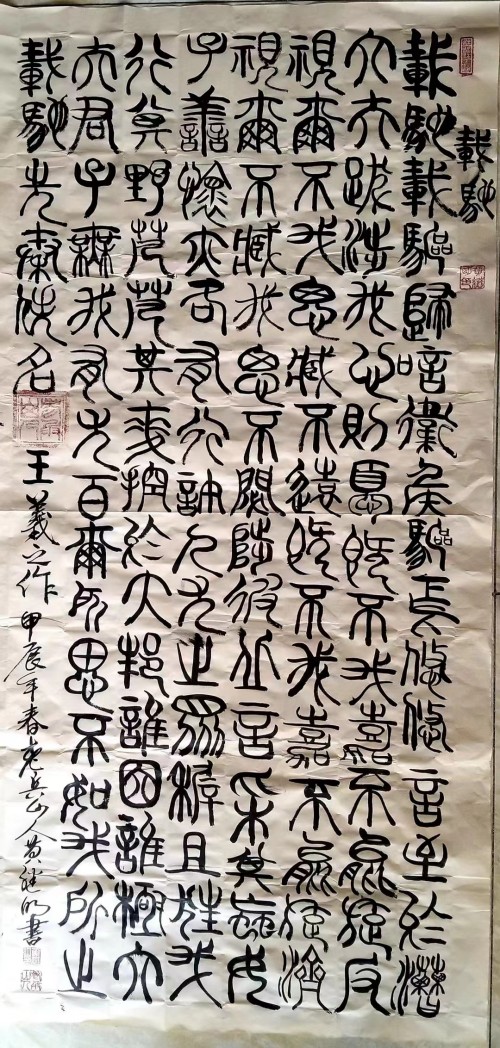 載馳
載馳載驅歸唁衛侯驅馬悠悠言至於漕
大夫跋涉我心則憂既不我嘉不能旋反
視爾不我思臧不遠既不我嘉不能旋濟
視爾不臧我思不閟陟彼丘言采其蝱女
子善懷亦各有行許人尤之眾稚且狂我
行其野芃芃其麥控於大邦誰因誰極大
夫君子無我有尤百爾所思不如我所之
載馳先秦佚名
王羲之作甲辰年春老兵山人黄继明書